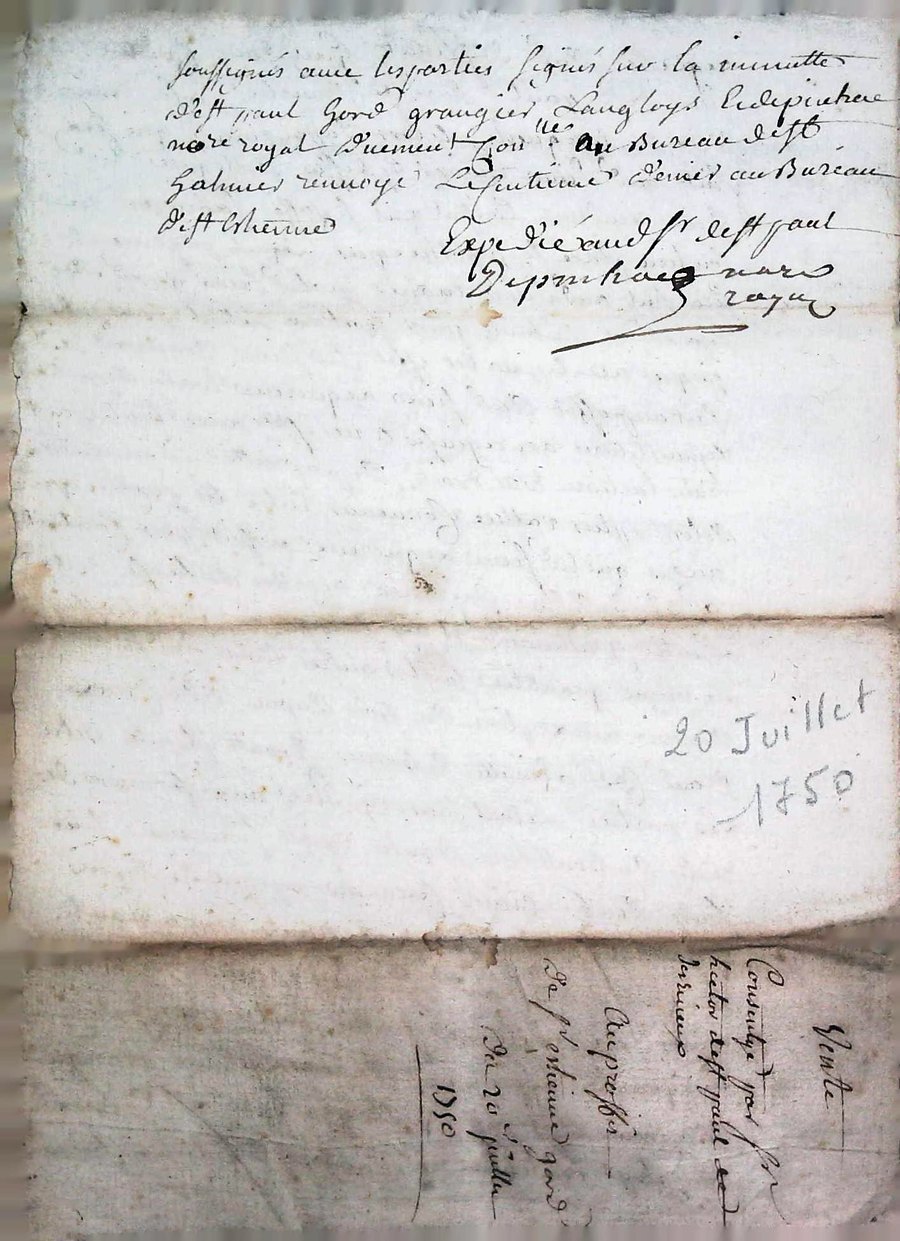 soussignés avec les parties signés sur la minutte
de st paul Gord grangier Langloys Et depinhac
nore royal Duement Conlle au Bureau de st
Galmier renvoyé Le Centieme denier au Bureau
de st Estienne
Expedié aud sr de st paul
Depinhac nore
royal
20 Juillet
1750
Vente
Consentye par sr
hector de st paul de
Au proffit
De sr estienne gord
Du 20e Juillet
1750